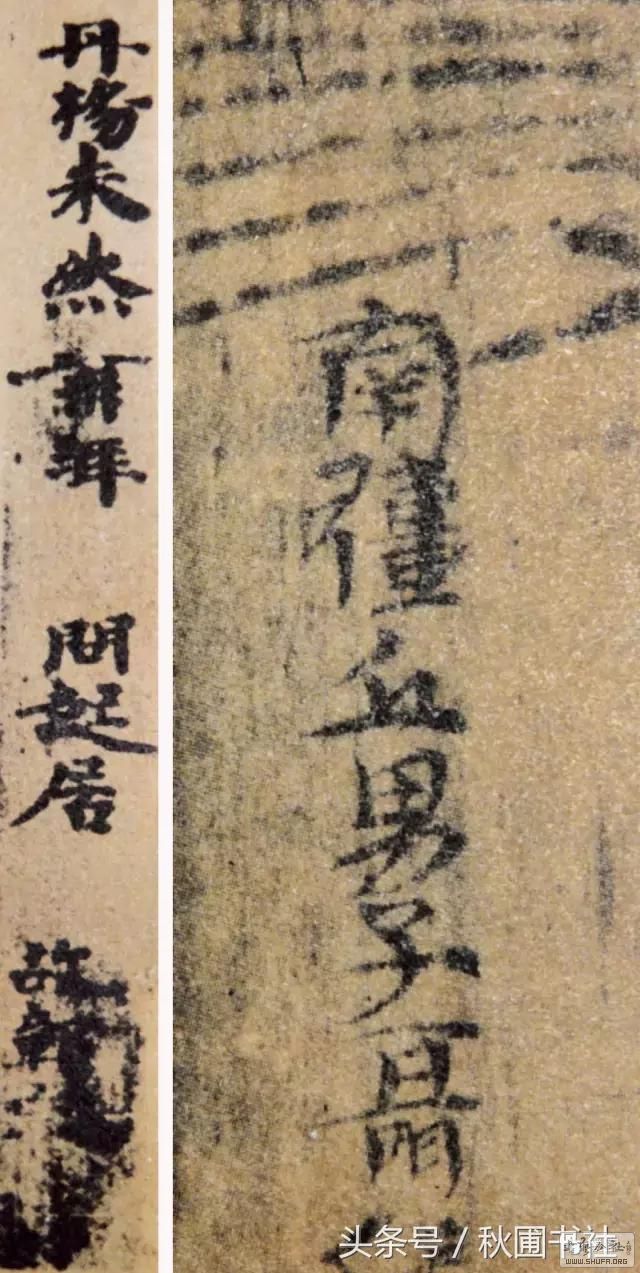 丹楊朱然再拜 問起居 故鄣
南彊丘男子聶
头条号 / 秋圃书社
WWW.SHUFA.ORG